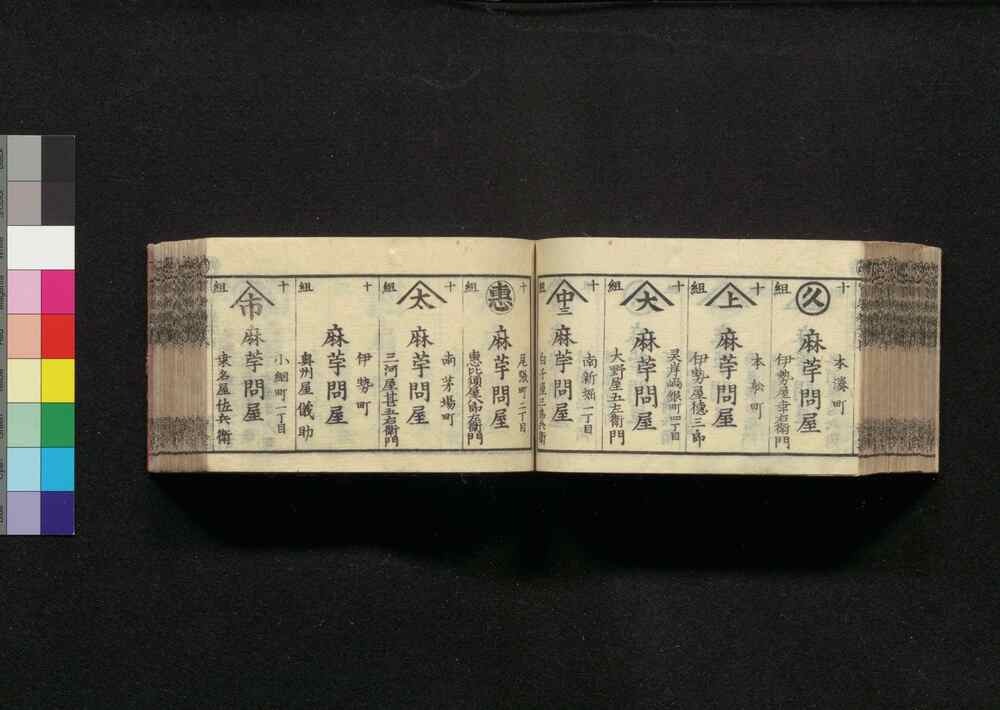 十組
久
本湊町
麻苧問屋
伊勢屋幸右衛門
十組
上
本船町
麻苧問屋
伊勢屋徳三郎
十組
大
霊岸嶋銀町四丁目
麻苧問屋
大野屋五左衛門
十組
中
南新堀一丁目
麻苧問屋
十
組
恵
尾張町二丁目
麻苧問屋
恵比須屋八郎左衛門
十組
太
南茅場町
麻苧問屋
三河屋甚五右衛門
十組
伊勢町
麻苧問屋
奥州屋儀助
十組
市
小網町一丁目
麻苧問屋
東名屋佐兵衛